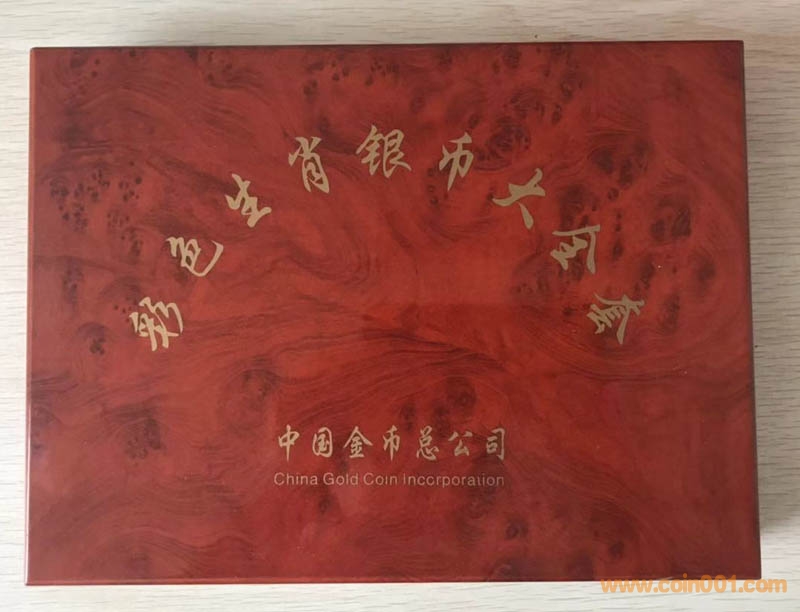 彩色生肖银币大全套
中国金币总公司
China Gold Coin Inccrporation
www.coin001.com